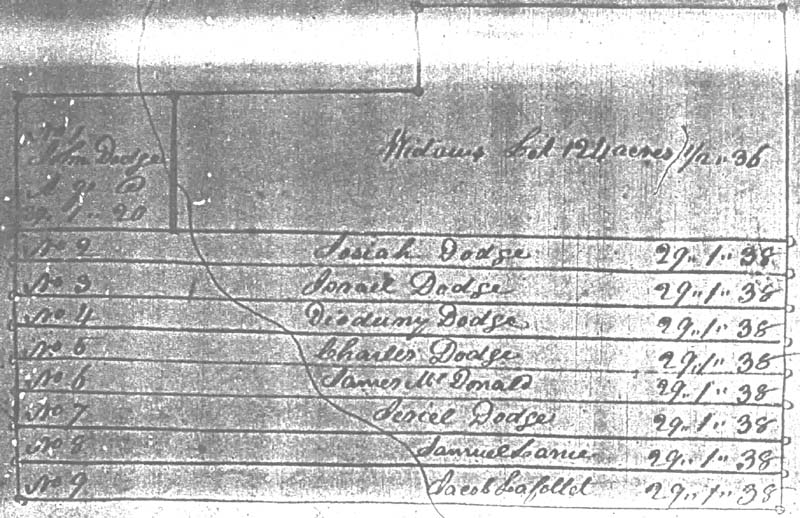 No 1
John Dodge
A qr @
29 " 1 " 20
Widows Lot 124 acres 1/2 " 36
No 2 Josiah Dodge 29 " 1 " 38
No 3 Israel Dodge 29 " 1 " 38
No 4 Diodumy Dodge 29 " 1 " 38
No 5 Charles Dodge 29 " 1 " 38
No 6 James McDonald 29 " 1 " 38
No 7 Jesiel Dodge 29 " 1 " 38
No 8 Samuel Lame 29 " 1 " 38
No 9 Jacob Lafollet 29 " 1 " 38